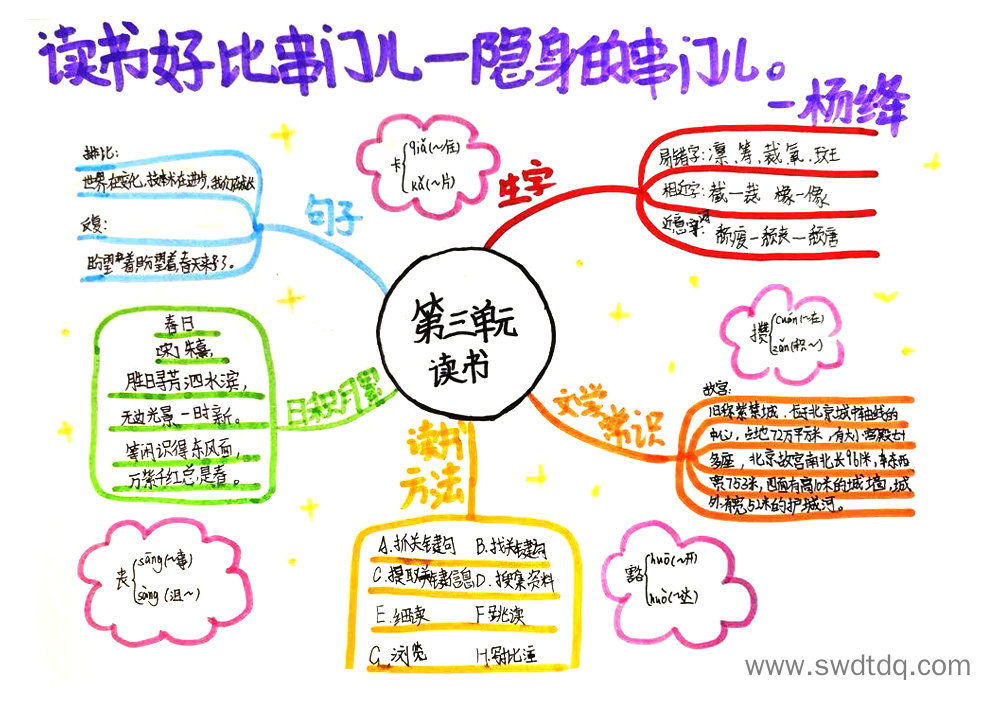 读书好比串门儿—隐身的串门儿。
—杨绛
第三单元
读书
句子
排比:
世界在变化,技术在进步,我们在成长
反复:
盼望着盼望着,春天来了。
卡
qiǎ(~住)
kǎ(~片)
生字
易错字:凛、筹、裁、氧、斑
相近字:截—裁 橡—像
近意字:颓废—颓丧—颓唐
攒
cuán(~在)
zǎn(积~)
日积月累
春日
[宋]朱熹
胜日寻芳泗水滨,
无边光景一时新。
等闲识得东风面,
万紫千红总是春。
文学常识
故宫:
旧称紫禁城。位于北京城中轴线的
中心,占地72万平方米,有大小宫殿七十
多座,北京故宫南北长961米,东西
宽753米,四面有高10米的城墙,城
外有宽52米的护城河。
读书
方法
A.抓关键句 B.找关键句
C.提取关键信息 D.搜集资料
E.细读 F.跳读
G.浏览 H.写批注
丧
sāng(~事)
sàng(沮~)
豁
huō(~开)
huò(~达)
www.swdtdq.com